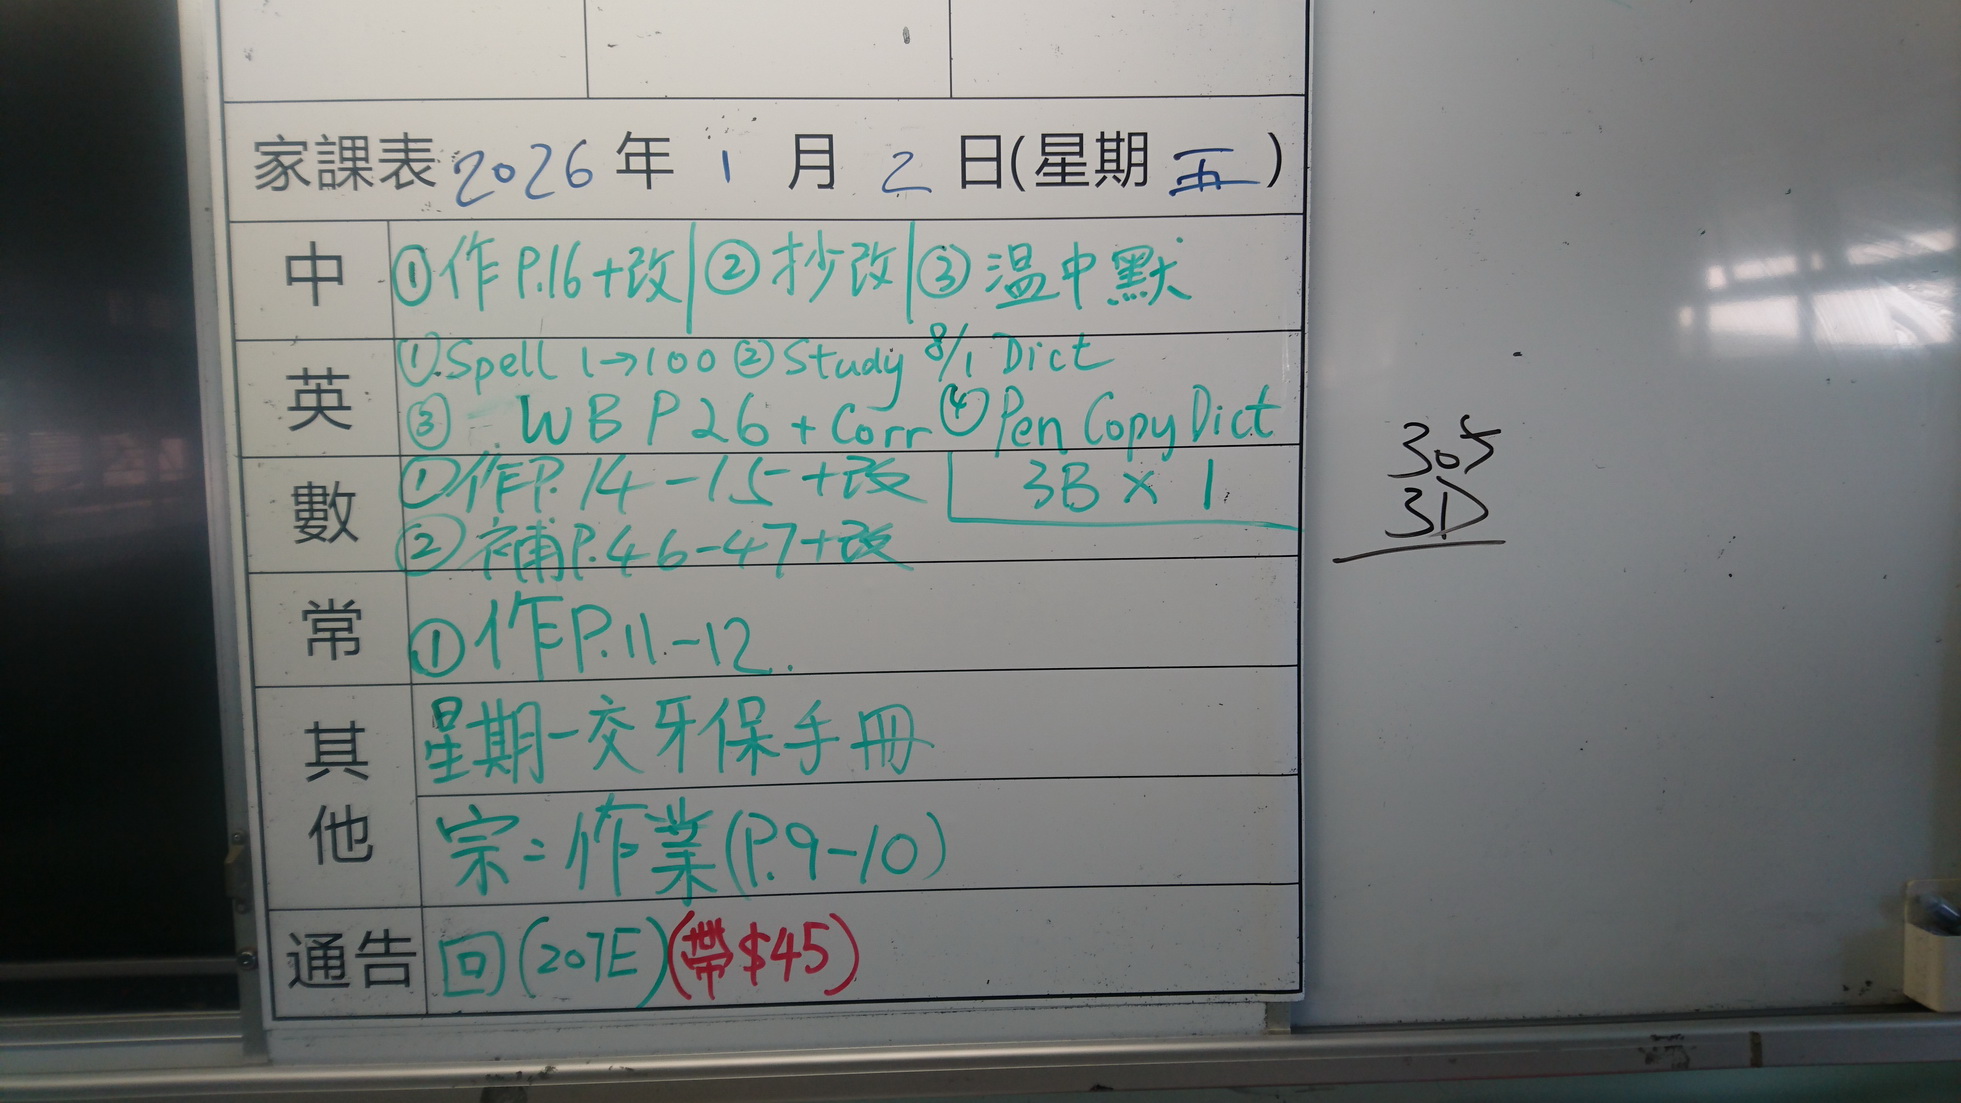 家課表 2026 年 1 月 2 日(星期 五)
中 ①作P.16+改|②抄改|③温中默
英 ①Spell 1→100 ②Study 8/1 Dict
③ WB P26 + Corr ④Pen Copy Dict
數 ①作P.14-15+改 3B × 1
②補P.46-47+改
常 ①作P.11-12.
其他 星期一交牙保手冊
宗=作業(P.9-10)
通告 回(207E)(帶$45)
305
3D